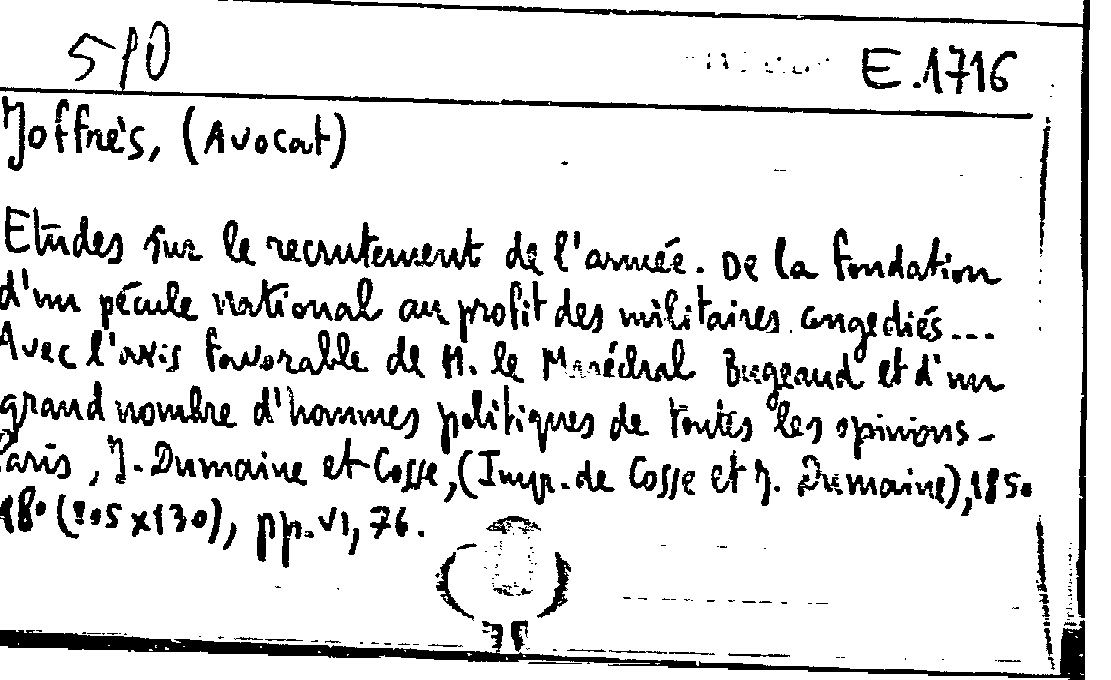 510 E.1716
Joffrès, (Avocat)
Etudes sur le recrutement de l'armée. De la fondation
d'un pécule national au profit des militaires congediés...
Avec l'avis favorable de M. le Maréchal Bugeaud et d'un
grand nombre d'hommes politiques de toutes les opinions-
Paris, J. Dumaine et Cosse, (Impr. de Cosse et J. Dumaine), 1850
(205 x 130), pp. VI, 76.